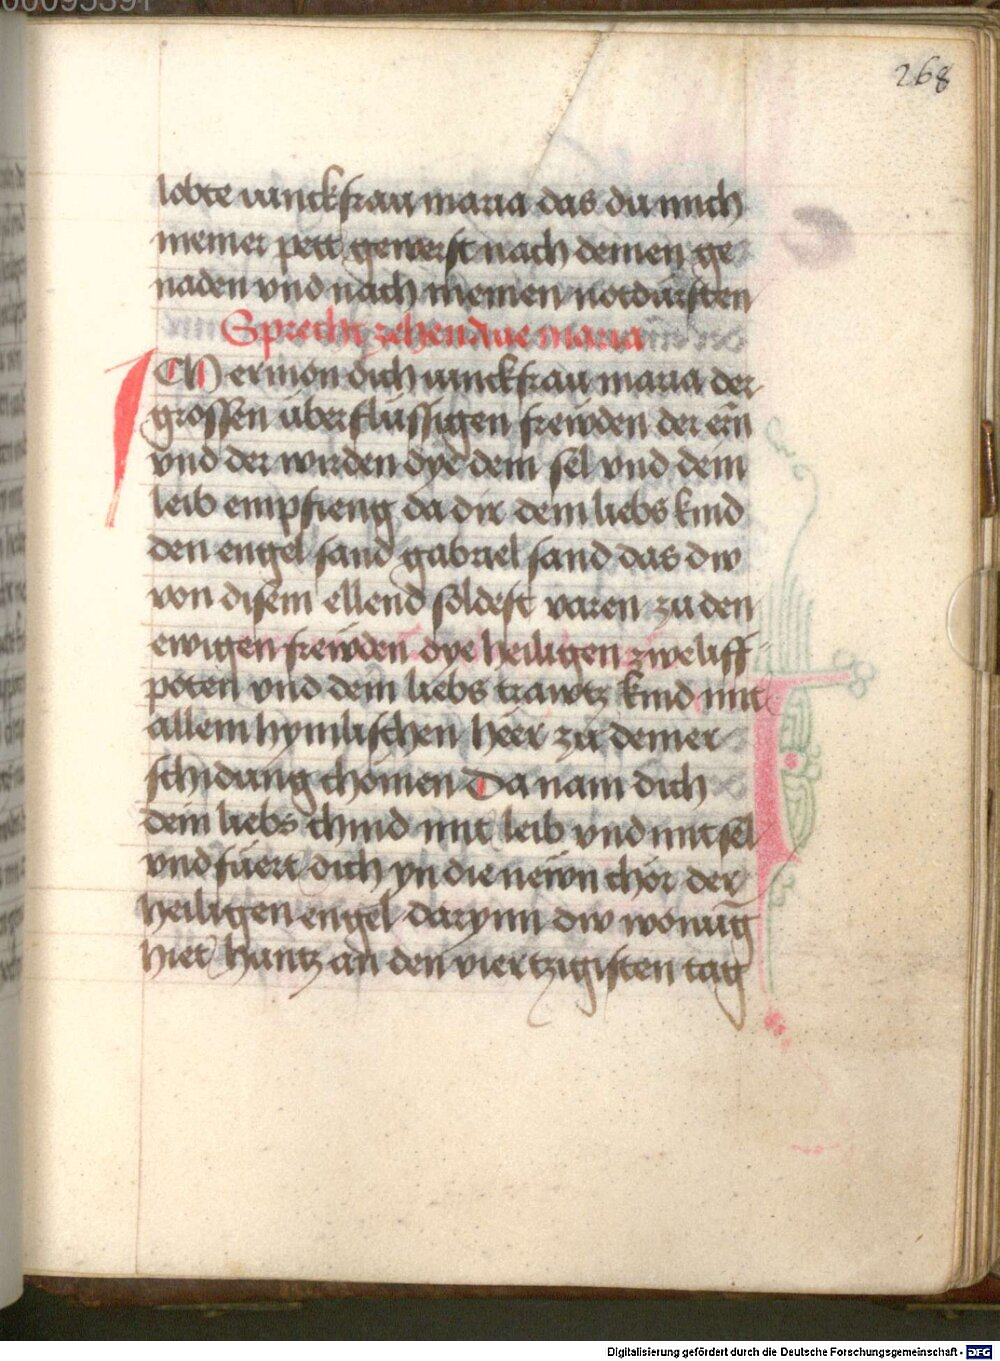 268
lobte iunckfrau maria das du mich
meiner pett gewerst nach deinen ge
naden vnd nach meinen notdürften
Sprecht zehen Aue maria
ICh ermon dich iunckfrau maria der
grossen überflüssigen frewden der ern̄
vnd der wirden dye dein sel vnd dein
leib empfieng da dir dein liebs kind
den engel sand gabriel sand das dw
von disem ellend soldest varen zu den
ewigen frewden dye heiligen zweliff
poten vnd dein liebs trawtz kind mit
allem hymlischen heer zu deiner
schidung chomen Da nam dich
dein liebs chind mit leib vnd mit sel
vnd füert dich yn die newn chör der
heiligen engel darynn dw wonūg
hiet huntz an den viertzigisten tag
Digitalisierung gefördert durch die Deutsche Forschungsgemeinschaft - DFG